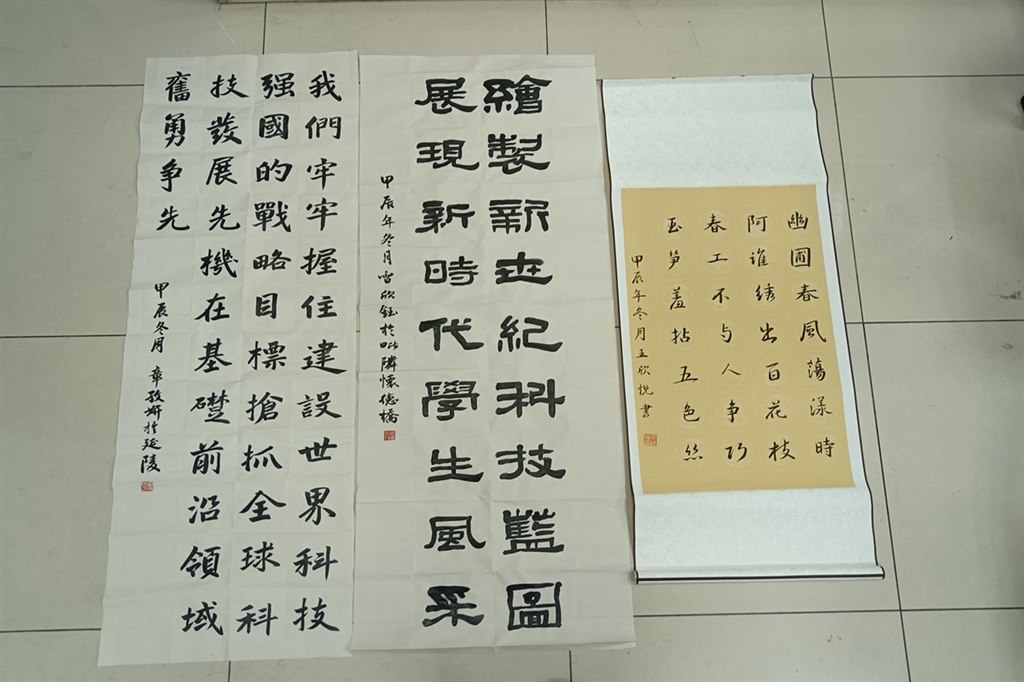 幽圃春風蕩漾時
阿谁绣出百花枝
春工不与人争巧
玉笋羞拈五色丝
甲辰年冬月王欣悦書
繪製新世紀科技藍圖
展現新時代學生風采
甲辰年冬月欣鈺於懷德橋
我們牢牢握住建設世界科技
强國的戰略目標搶抓全球科
技發展先機在基礎前沿領域
奮勇争先
甲辰冬月章於延陵